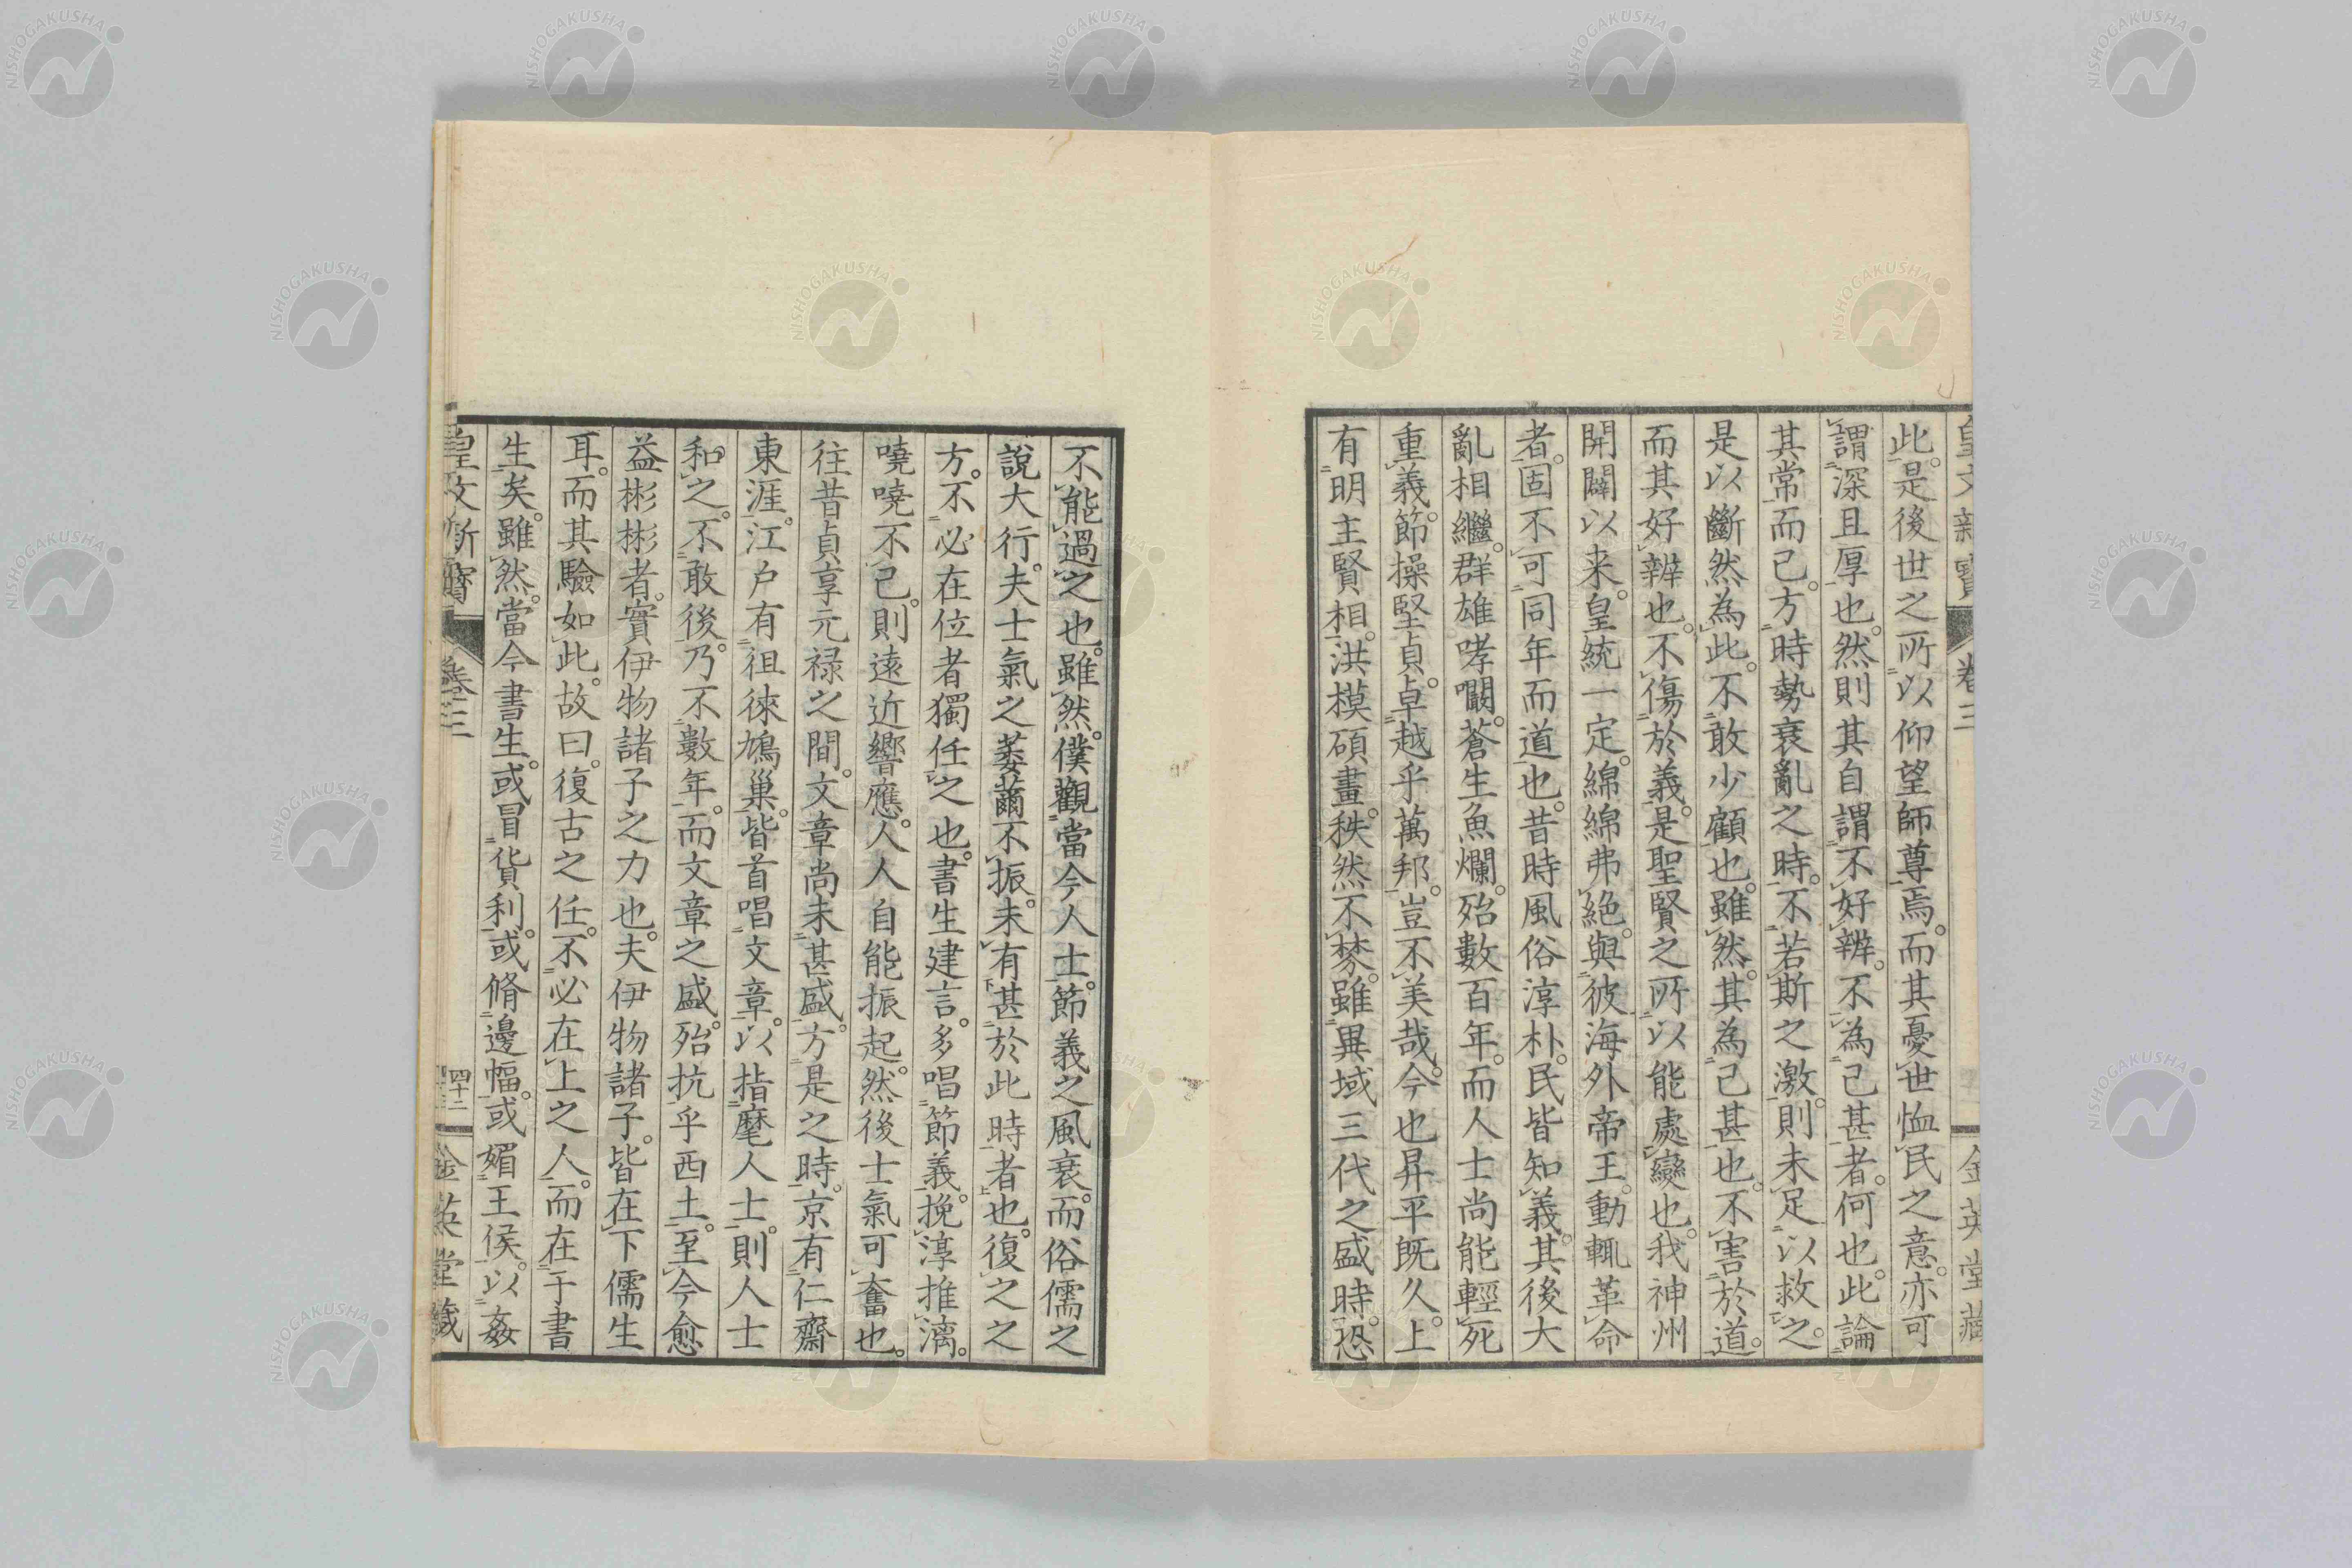 皇文新寶 卷三 金英堂藏
此。是後世之所以仰望師尊焉。而其憂世恤民之意。亦可
謂深且厚也。然則其自謂不好辨。不為己甚者。何也。此論
其常而已。方時勢衰亂之時。不若斯之激。則未足以救之。
是以斷然為此。不敢少顧也。雖然。其為己甚也。不害於道。
而其好辨也。不傷於義。是聖賢之所以能處變也。我神州
開闢以来。皇統一定。綿綿弗絕。與彼海外帝王。動輒革命
者。固不可同年而道也。昔時風俗淳朴。民皆知義。其後大
亂相繼。群雄哮闞。蒼生魚爛。殆數百年。而人士尚能輕死
重義。節操堅貞。卓越乎萬邦。豈不美哉。今也昇平既久。上
有明主賢相。洪模碩畫。秩然不棼。雖異域三代之盛時。恐
不能過之也。雖然。僕觀當今人士。節義之風衰。而俗儒之
說大行。夫士氣之萎薾不振。未有甚於此時者也。復之之
方。不必在位者獨任之也。書生建言。多唱節義。挽淳推漓。
嘵嘵不已。則遠近響應。人人自能振起。然後士氣可奮也。
往昔貞享元禄之間。文章尚未甚盛。方是之時。京有仁齋
東涯。江户有徂徠鳩巢。皆首唱文章。以指麾人士。則人士
和之。不敢後。乃不數年。而文章之盛。殆抗乎西土。至今愈
益彬彬者。實伊物諸子之力也。夫伊物諸子。皆在下儒生
耳。而其驗如此。故曰。復古之任。不必在上之人。而在于書
生矣。雖然。當今書生。或冒貨利。或脩邊幅。或媚王侯。以姦
皇文新寶 卷三 四十二 金英堂藏
NISHOGAKUSHA